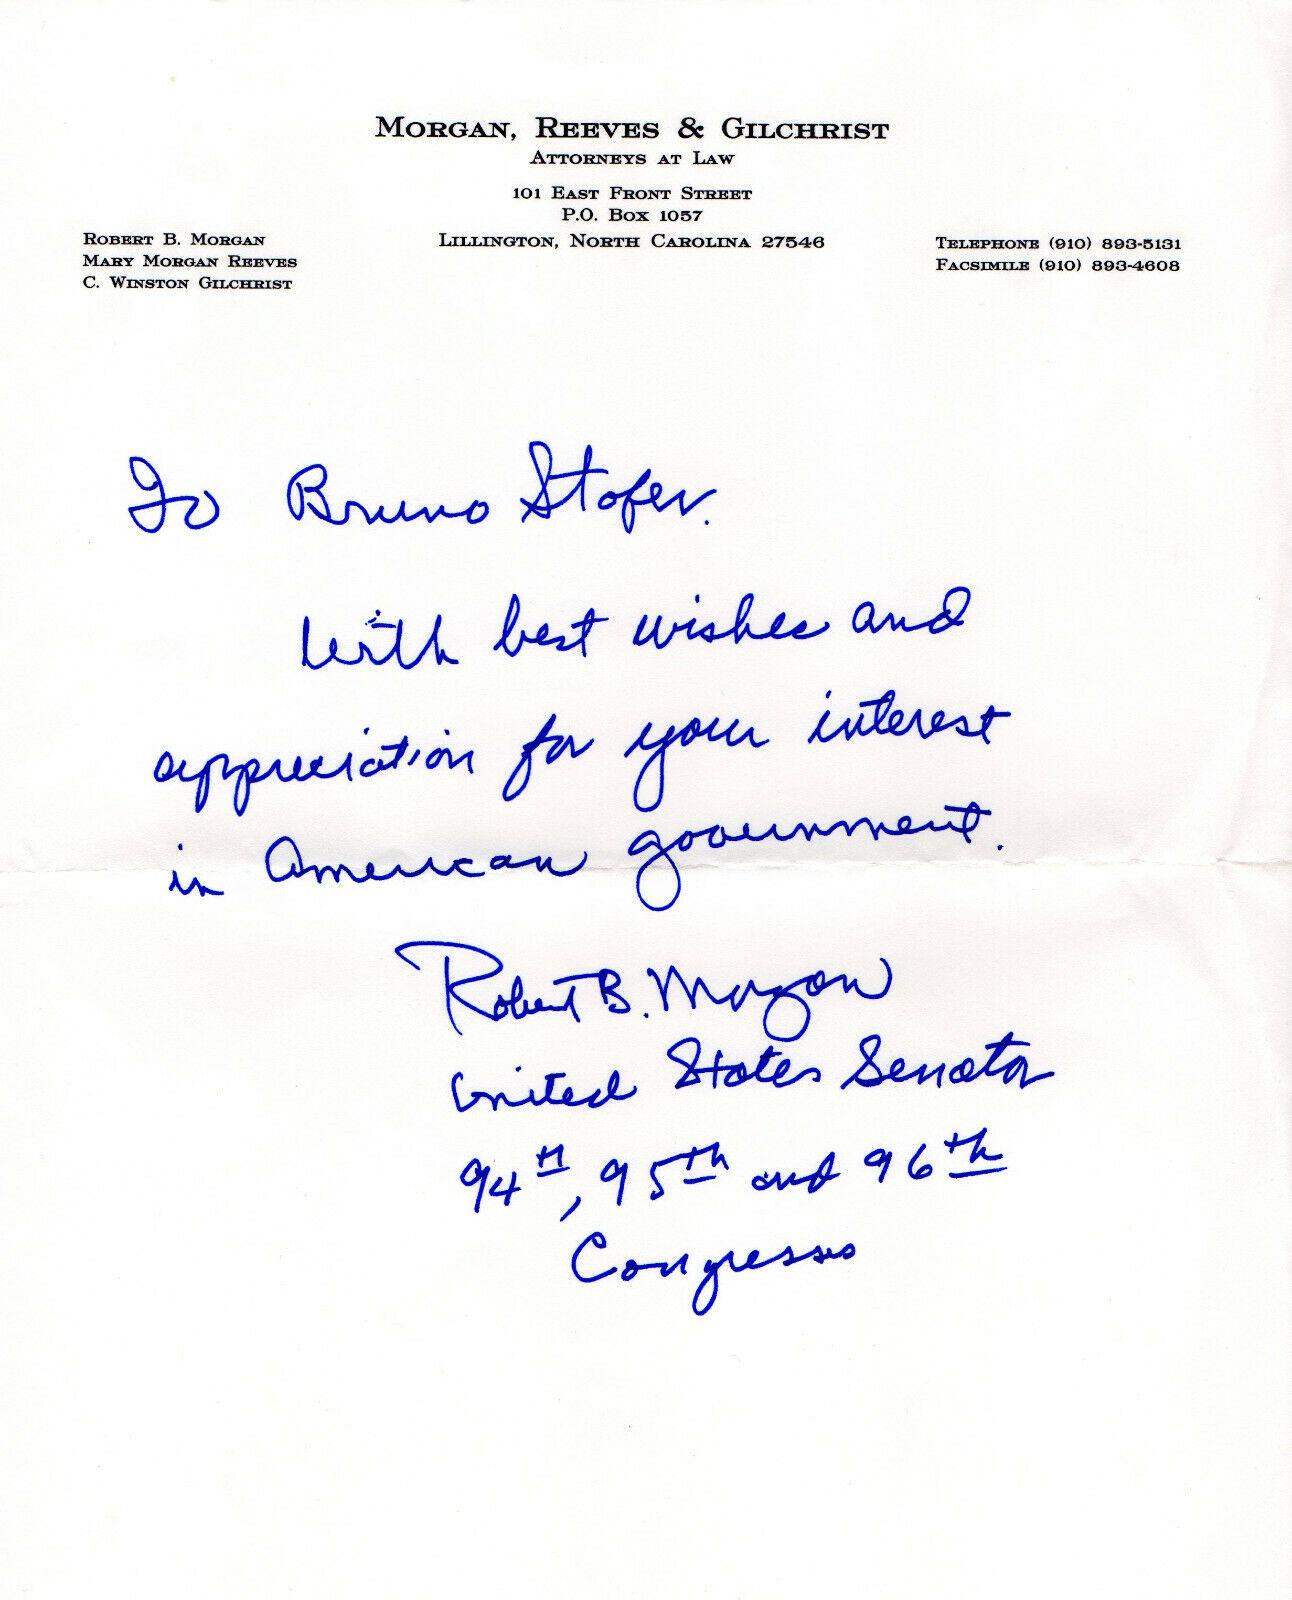 MORGAN, REEVES & GILCHRIST
ATTORNEYS AT LAW
101 EAST FRONT STREET
P.O. BOX 1057
LILLINGTON, NORTH CAROLINA 27546
ROBERT B. MORGAN
MARY MORGAN REEVES
C. WINSTON GILCHRIST
TELEPHONE (910) 893-5131
FACSIMILE (910) 893-4608
To Bruno Stofer.
With best wishes and
appreciation for your interest
in American government.
Robert B. Morgan
United States Senator
94th, 95th and 96th
Congresses